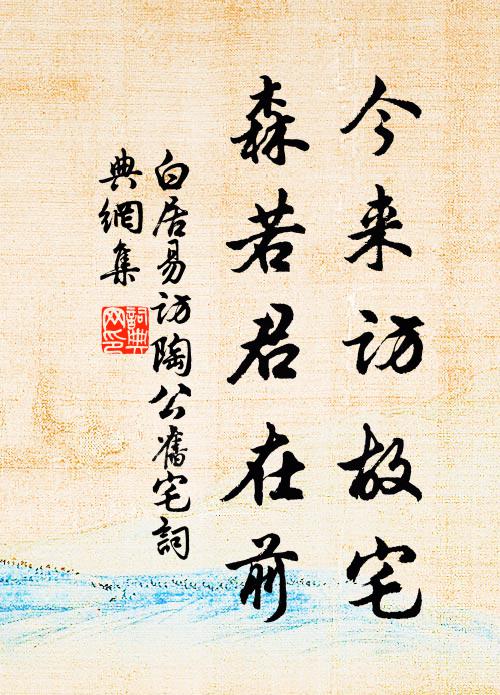 今来访故宅
森若君在前
白居易访陶公舊宅詞
典網集
詞典
网印